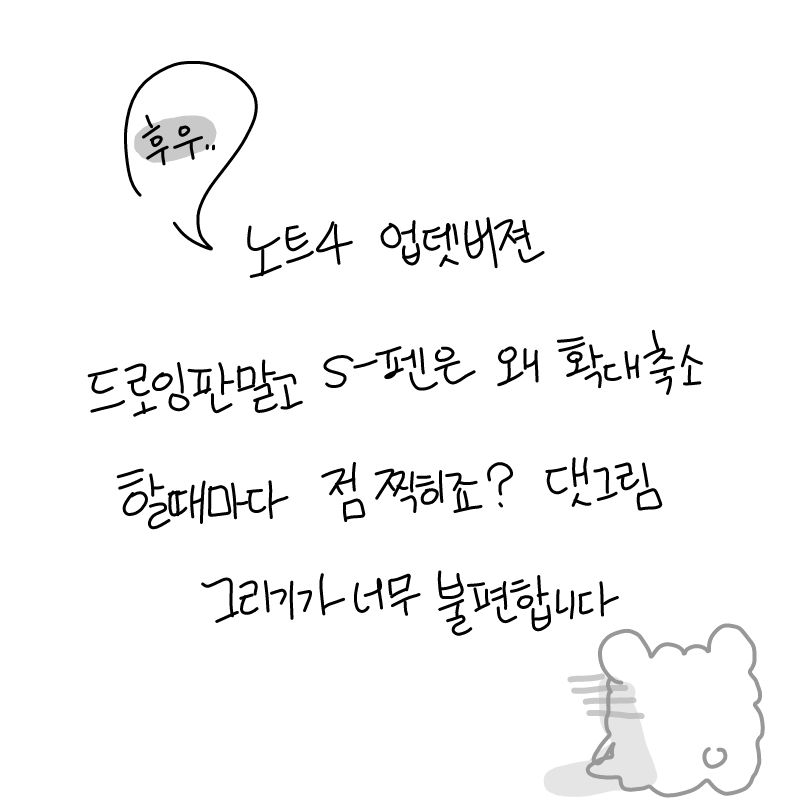 후우..
노트4 업뎃버젼
드로잉판말고 S-펜은 왜 확대축소
할때마다 점 찍히죠? 댓그림
그리기가 너무 불편합니다